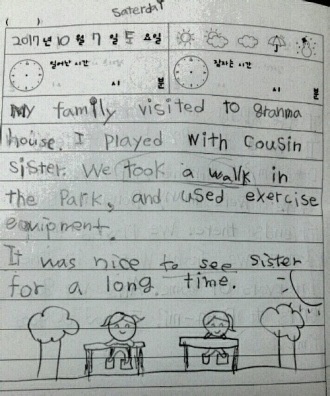 Saterday
( )
2017년 10월 7일 토요일
일어난 시간 잠자는 시간
시 분 시 분
My family visited to granma
house. I played with cousin
sister. We took a walk in
the Park, and used exercise
equipment.
It was nice to see sister
for a long time.